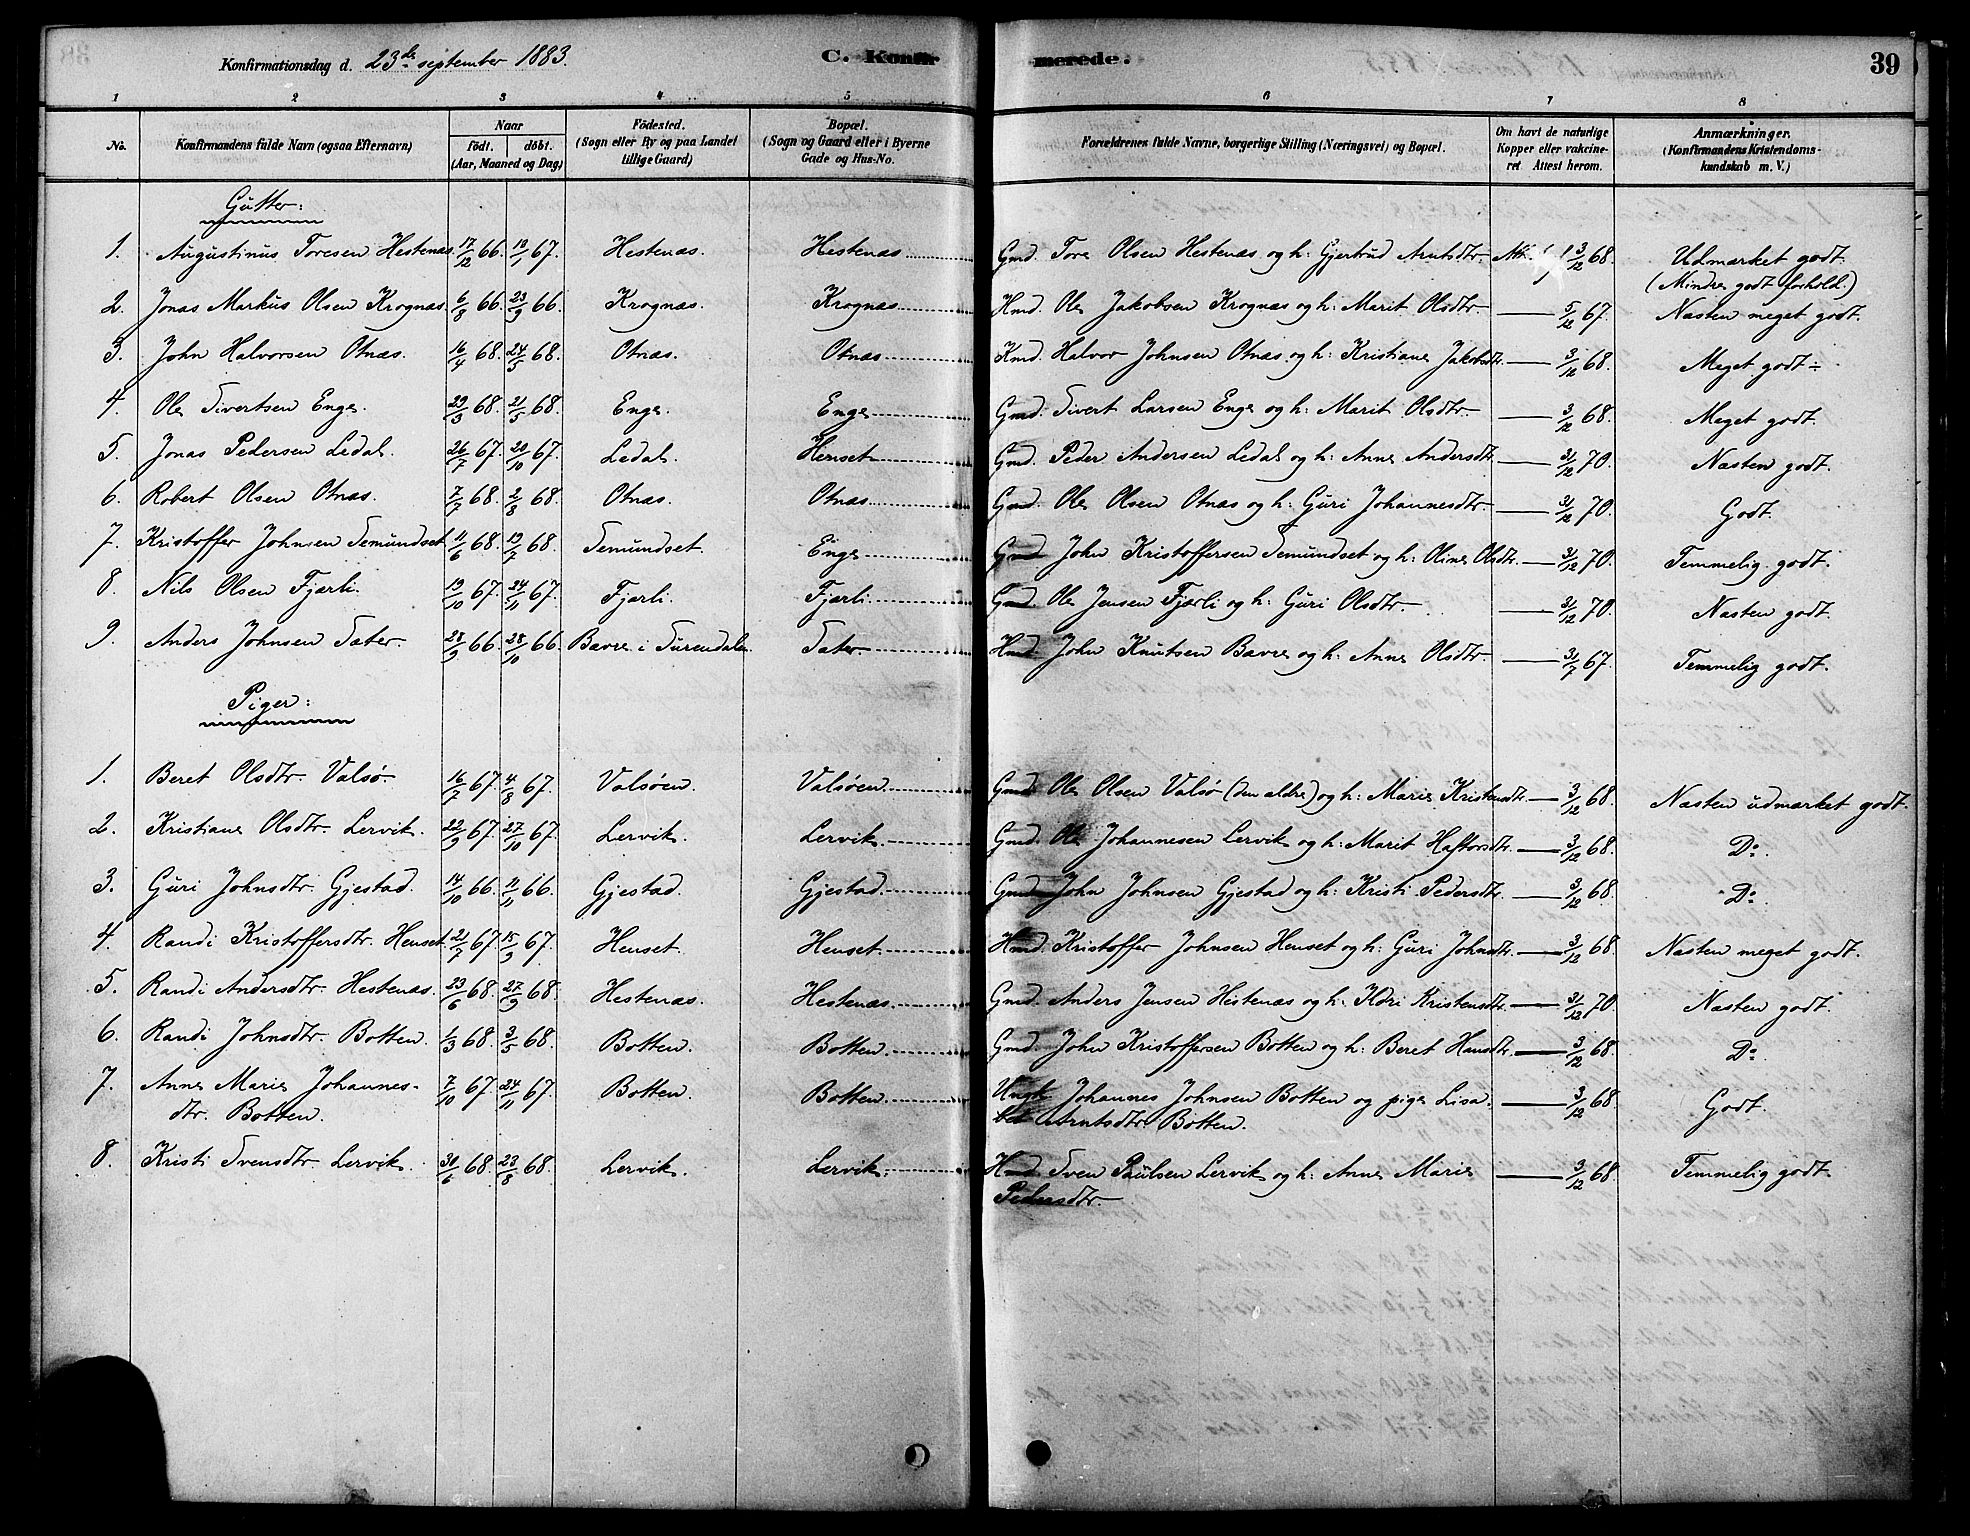 Konfirmationsdag d. 23de september 1883. C. Konfirmerede. 39
1 2 3 4 5 6 7 8
No. Konfirmandens fulde Navn (ogsaa Efternavn) Naar Født. døbt. (Aar, Maaned og Dag) Fødested. (Sogn eller By og paa Landet tillige Gaard) Bopæl. (Sogn og Gaard eller i Byerne Gade og Hus-No. Forældrenes fulde Navne, borgerlige Stilling (Næringsvei) og Bopæl. Om havt de naturlige Kopper eller vakcineret Attest herom. Anmærkninger. (Konfirmandens Kristendomskundskab m. V.)
Gutter:
1. Augustinus Toresen Hestenæs. 17/12 66. 13/1 67. Hestenæs. Hestenæs Gmd. Tore Olsen Hestenæs og h: Gjertrud Arntsdtr. 3/12 68. Udmærket godt.
(Mindre godt forhold.)
2. Jonas Markus Olsen Krognæs. 6/8 66. 23/9 66. Krognæs. Krognæs Hmd. Ole Jakobsen Krognæs og h: Marit Olsdtr. — 5/12 67. Næsten meget godt.
3. John Halvorsen Otnæs. 16/4 68. 24/5 68. Otnæs. Otnæs Kmd. Halvor Johnsen Otnæs og h: Kristiane Jakobsdtr. — 3/12 68. Meget godt ÷
4. Ole Sivertsen Enge. 29/3 68. 21/5 68. Enge. Enge Gmd. Sivert Larsen Enge og h: Marit Olsdtr. — 3/12 68. Meget godt.
5. Jonas Pedersen Ledal. 26/7 67. 20/10 67. Ledal. Henset Gmd. Peder Andersen Ledal og h: Anne Andersdtr. — 31/12 70. Næsten godt.
6. Robert Olsen Otnæs. 7/7 68. 2/8 68. Otnæs. Otnæs Gmd. Ole Olsen Otnæs og h: Guri Johannesdtr. — 31/12 70. Godt.
7. Kristoffer Johnsen Semundset. 11/6 68. 19/7 68. Semundset. Enge Gmd. John Kristoffersen Semundset og h: Oline Olsdtr. — 31/12 70. Temmelig godt.
8. Nils Olsen Fjærli. 19/10 67. 24/11 67. Fjærli. Fjærli Gmd. Ole Jensen Fjærli og h: Guri Olsdtr. — 31/12 70. Næsten godt.
9. Anders Johnsen Sæter. 28/9 66. 28/10 66. Bævre i Surendalen. Sæter Hmd. John Knutsen Bævre og h: Anne Olsdtr. — 31/7 67. Temmelig godt.
Piger:
1. Beret Olsdtr. Valsø. 16/7 67. 4/8 67. Valsøen. Valsøen Gmd. Ole Olsen Valsø (den ældre) og h: Marie Kristensdtr. — 3/12 68. Næsten udmærket godt.
2. Kristiane Olsdtr. Lervik. 22/9 67. 27/10 67. Lervik. Lervik. Gmd. Ole Johannesen Lervik og h: Marit Haftorsdtr. — 3/12 68. Do.
3. Guri Johnsdtr. Gjestad. 14/10 66. 11/11 66. Gjestad. Gjestad. Gmd. John Johnsen Gjestad og h: Kristi Pedersdtr. — 3/12 68. Do.
4. Randi Kristoffersdtr. Henset. 21/7 67. 15/9 67. Henset. Henset. Hmd. Kristoffer Johnsen Henset og h: Guri Johnsdtr. — 3/12 68. Næsten meget godt.
5. Randi Andersdtr. Hestenæs. 23/6 68. 27/9 68. Hestenæs. Hestenæs. Gmd. Anders Jensen Hestenæs og h: Ildri Kristensdtr. — 31/12 70. Næsten godt.
6. Randi Johnsdtr. Botten. 1/3 68. 3/5 68. Botten. Botten. Gmd. John Kristoffersen Botten og h: Beret Hansdtr. — 3/12 68. Do.
7. Anne Marie Johannes- 7/10 67. 24/11 67. Botten. Botten. Ungk. Johannes Johnsen Botten og pige Lisa- — 3/12 68. Godt.
dtr. Botten. bet Arntsdtr. Botten.
8. Kristi Svensdtr. Lervik. 30/6 68. 23/8 68. Lervik. Lervik. Hmd. Sven Paulsen Lervik og h: Anne Marie — 3/12 68. Temmelig godt.
Pedersdtr.